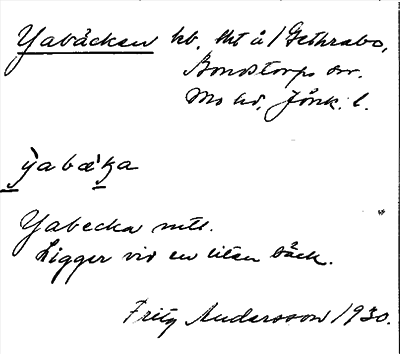 Yabäcken hb. tht å 1 Gethrabo,
Bondstorps sn.
Mo hd, Jönk. l.
ỳabæ̀ka
Yabecka mtl.
Ligger vid en liten bäck.
Fritz Andersson 1930.